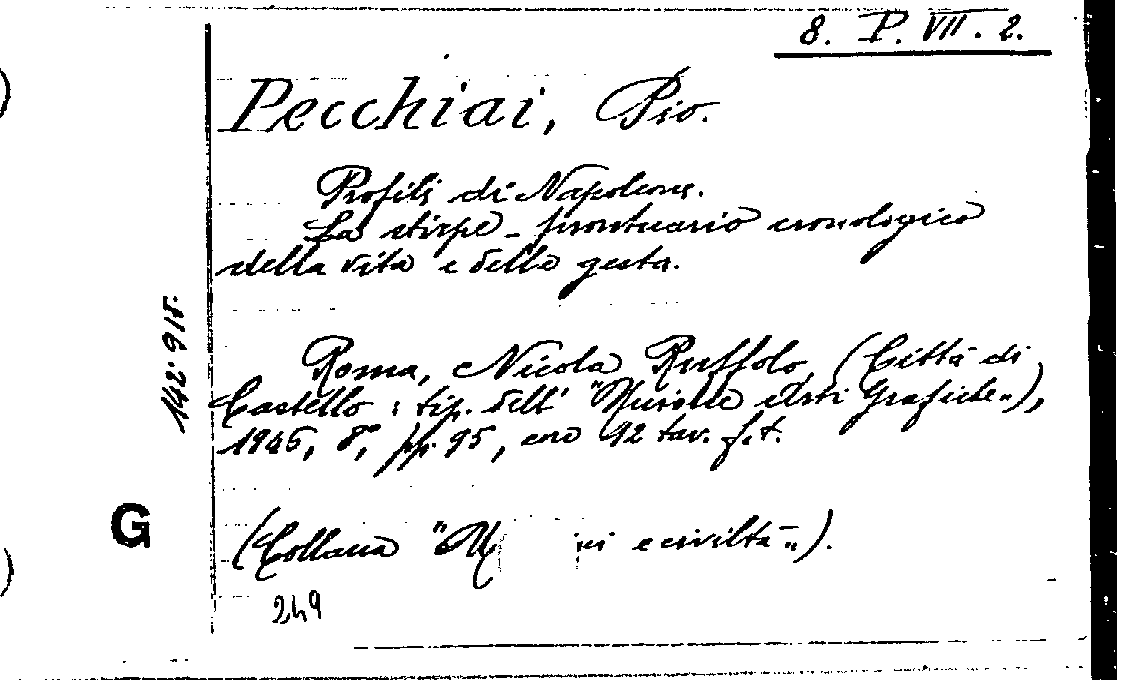 8. P. VII. 2.
Pecchiai, Pio.
Profili di Napoleone.
La stirpe - prontuario cronologico
della vita e delle gesta.
142.915.
Roma, Nicola Ruffolo, (Città di
Castello : tip. dell' "Unione Arti Grafiche"),
1946, 8°, pp. 95, con 92 tav. f.t.
G
(Collana " ni e civiltà").
249